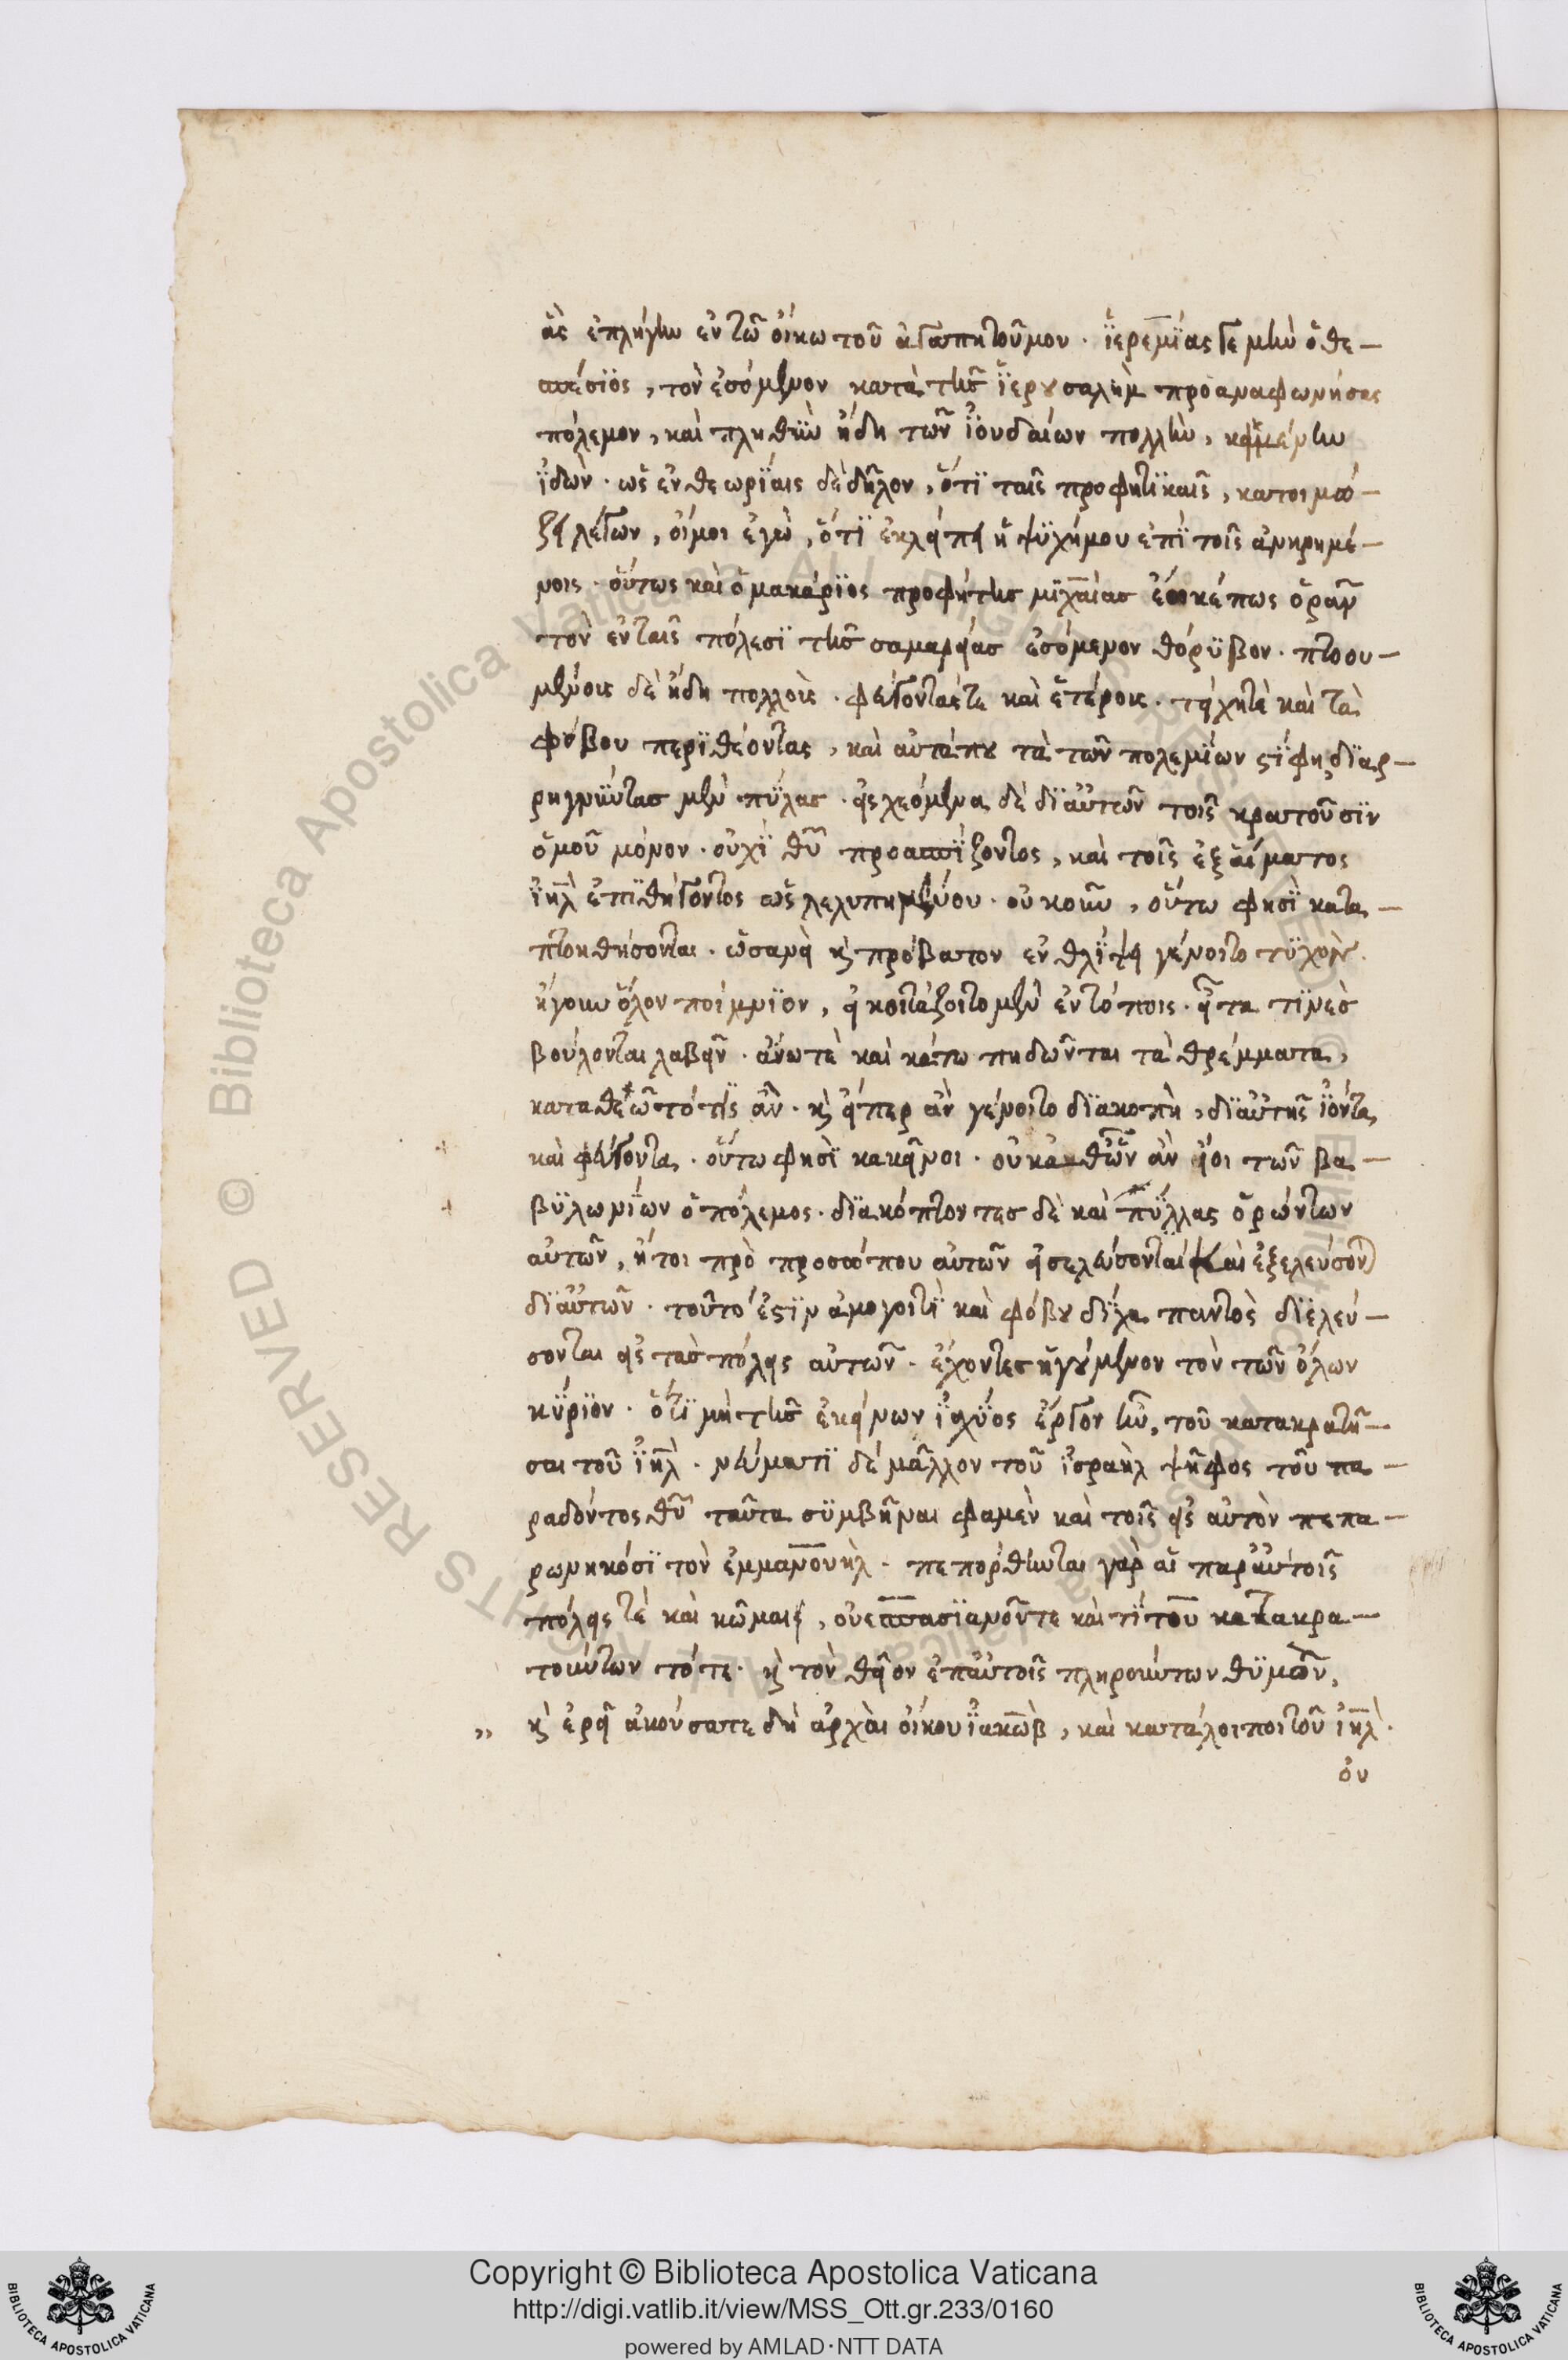 ἃς ἐπλήγην ἐν τῶ οἴκω τοῦ ἀγαπητοῦ μου · ἱερεμίας γε μὴν ὁ θε-
σπέσιος, τὸν ἐσόμενον κατὰ τῆς ἱερουσαλὴμ προαναφωνήσας
πόλεμον, καὶ πληθὺν ἤδη τῶν ἰουδαίων πολλὴν, κειμένην
ἰδὼν · ὡς ἐν θεωρίαις δὲ δῆλον, ὅτι ταῖς προφητικαῖς, κατοιμώ-
ζει λέγων, οἴμοι ἐγὼ, ὅτι ἐκλείπει ἡ ψυχή μου ἐπὶ τοῖς ἀνηρημέ-
νοις · οὕτως καὶ ὁ μακάριος προφήτης μιχαίας ἔοικέ πως ὁρᾶν
τὸν ἐν ταῖς πόλεσι τῆς σαμαρείας ἐσόμενον θόρυβον · πτοου-
μένους δὲ ἤδη πολλοὺς · φεύγοντάς τε καὶ ἑτέρους · τείχη τὲ καὶ τὰ
φόβου περιθέοντας, καὶ αὐτά που τὰ τῶν πολεμίων ξίφη, διαρ-
ρηγνύντας μὲν πύλας · εἰσχεόμενα δὲ δι αὐτῶν τοῖς κρατοῦσιν
ὁμοῦ μόνον · οὐχὶ θυ προασπίζοντος, καὶ τοῖς ἐξ αἵματος
ιηλ ἐπιθήγοντος ὡς λελυπημένου · οὐκοῦν, οὕτω φησὶ κατα-
πτοηθήσονται · ὡσανεὶ κ πρόβατον ἐν θλίψει γένοιτο τυχὸν ·
ἤγουν ὅλον ποίμνιον, εἰ κοιτάζοιτο μὲν ἐν τόποις · εἶτα τινὲς
βούλονται λαβεῖν · ἄνω τὲ καὶ κάτω πηδῶνται τὰ θρέμματα,
καταθεῶτό τις ἂν · κ εἴπερ ἂν γένοιτο διακοπὴ, δι αὐτῆς ἰόντα
καὶ φεύγοντα · οὕτω φησὶ κακεῖνοι · οὐκ ἀνθῶν ἂν εἴοι τῶν βα-
βυλωνίων ὁ πόλεμος · διακόπτοντες δὲ καὶ πύλλας ὁρώντων
αὐτῶν, ἤτοι πρὸ προσώπου αὐτῶν εἰσελεύσονται καὶ ἐξελεύσον
δι αὐτῶν · τοῦτό ἐστιν ἀμογοιτὶ καὶ φόβου δίχα παντὸς διελεύ-
σονται εἰς τὰς πόλεις αὐτῶν · ἔχοντες ἡγούμενον τὸν τῶν ὅλων
κύριον · ὅτι μὴ τῆς ἐκείνων ἰσχύος ἔργον ἦν, τοῦ κατακρατῆ-
σαι τοῦ ιηλ · νεύματι δὲ μᾶλλον τοῦ ἰσραὴλ ψῆφος τοῦ πα-
ραδόντος θυ ταῦτα συμβῆναι φαμὲν καὶ τοῖς εἰς αὐτὸν πεπα-
ρωνηκόσι τὸν ἐμμανουὴλ · πεπόρθηνται γὰρ αἱ παρ αὐτοῖς
πόλεις τὲ καὶ κῶμαι, οὐεσπασιανοῦ τε καὶ τίτου κατακρα-
τούντων τότε · κ τὸν θεῖον ἐπ αὐτοῖς πληρούντων θυμῶν,
„ κ ἐρεῖ ἀκούσατε δὴ ἀρχαὶ οἴκου ἰακὼβ, καὶ κατάλοιποι τοῦ ιηλ ·
ου
Copyright © Biblioteca Apostolica Vaticana
http://digi.vatlib.it/view/MSS_Ott.gr.233/0160
powered by AMLAD·NTT DATA